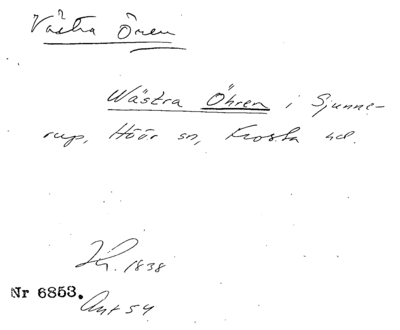 Västra Ören
Wästra Öhren i Sjunne-
rup, Höör sn, Frosta hd.
1838
Nr 6853.
Ant 54